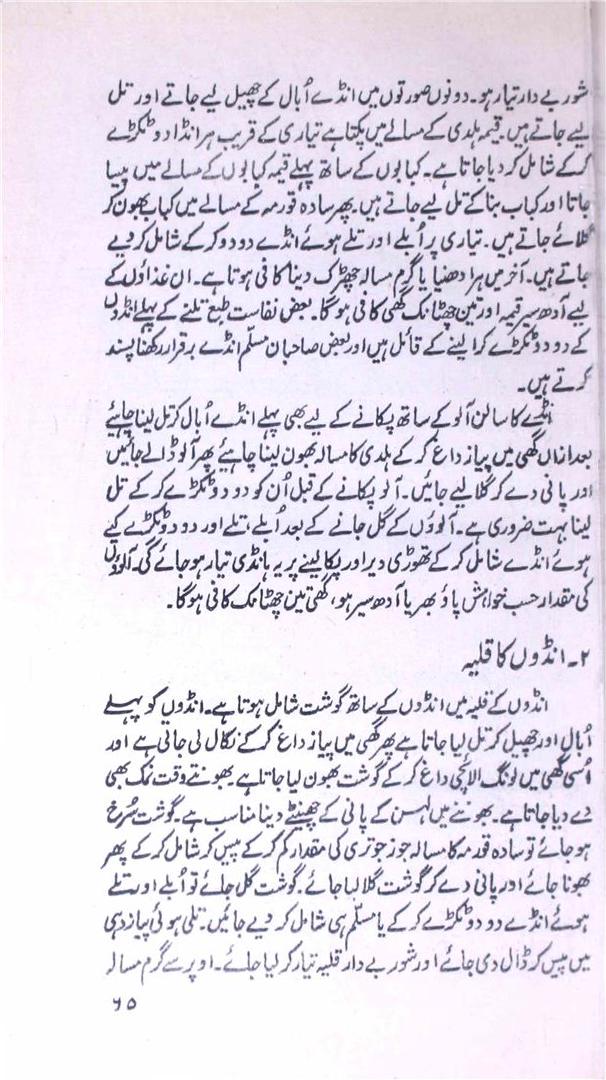 شوربے دار تیار ہو۔ دونوں صورتوں میں انڈے اُبال کے چھیل لیے جاتے اور تل
لیے جاتے ہیں۔ قیمہ ہلدی کے مسالے میں پکتا ہے تیاری کے قریب ہر انڈا دو ٹکڑے
کرکے شامل کر دیا جاتا ہے۔ کبابوں کے ساتھ پہلے قیمہ کبابوں کے مسالے میں پیسا
جاتا اور کباب بنا کے تل لیے جاتے ہیں۔ پھر سادہ قورمہ کے مسالے میں کباب بھون کر
گلائے جاتے ہیں۔ تیاری پر اُبلے اور تلے ہوئے انڈے دو دو کر کے شامل کر دیے
جاتے ہیں۔ آخر میں ہرا دھنیا یا گرم مسالہ چھڑک دینا کافی ہوتا ہے۔ ان غذاؤں کے
لیے آدھ سیر قیمہ اور تین چھٹانک گھی کافی ہوگا۔ بعض نفاست طبع تلنے کے پہلے انڈوں
کے دو دو ٹکڑے کرا لینے کے قائل ہیں اور بعض صاحبان مسلّم انڈے برقرار رکھنا پسند
کرتے ہیں۔
انڈے کا سالن آلو کے ساتھ پکانے کے لیے بھی پہلے انڈے اُبال کر تل لینا چاہیئے
بعد ازاں گھی میں پیاز داغ کر کے ہلدی کا مسالہ بھون لینا چاہیئے پھر آلو ڈالے جائیں
اور پانی دے کر گلا لیے جائیں۔ آلو پکانے کے قبل اُن کو دو دو ٹکڑے کر کے تل
لینا بہت ضروری ہے۔ آلوؤں کے گل جانے کے بعد اُبلے، تلے اور دو دو ٹکڑے کیے
ہوئے انڈے شامل کر کے تھوڑی دیر اور پکا لینے پر یہ ہانڈی تیار ہو جائے گی۔ آلوؤں
کی مقدار حسب خواہش پاؤ بھر یا آدھ سیر ہو، گھی تین چھٹانک کافی ہوگا۔
۲۔ انڈوں کا قلیہ
انڈوں کے قلیہ میں انڈوں کے ساتھ گوشت شامل ہوتا ہے۔ انڈوں کو پہلے
اُبال اور چھیل کر تل لیا جاتا ہے پھر گھی میں پیاز داغ کر کے نکال لی جاتی ہے اور
اُسی گھی میں لونگ الائچی داغ کر کے گوشت بھون لیا جاتا ہے۔ بھونتے وقت نمک بھی
دے دیا جاتا ہے۔ بھوننے میں لہسن کے پانی کے چھینٹے دینا مناسب ہے۔ گوشت سُرخ
ہو جائے تو سادہ قورمہ کا مسالہ جوز جوتری کی مقدار کم کر کے پیس کر شامل کر کے پھر
بھونا جائے اور پانی دے کر گوشت گلا لیا جائے۔ گوشت گل جائے تو اُبلے اور تلے
ہوئے انڈے دو دو ٹکڑے کر کے یا مسلّم ہی شامل کر دیے جائیں۔ تلی ہوئی پیاز دہی
میں پیس کر ڈال دی جائے اور شوربے دار قلیہ تیار کر لیا جائے۔ اوپر سے گرم مسالہ
۶۵